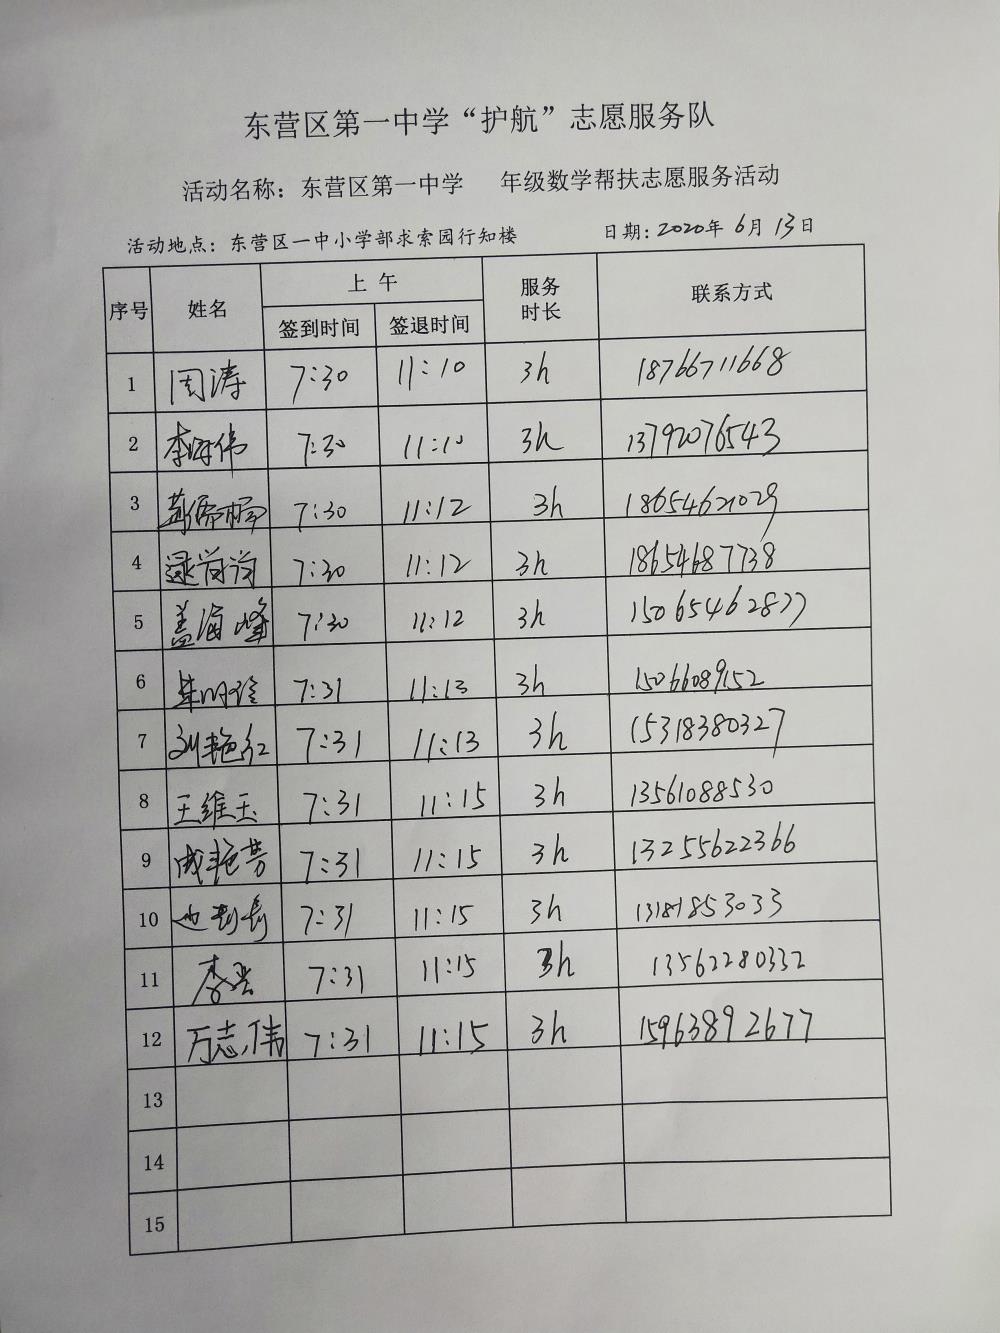 东营区第一中学“护航”志愿服务队
活动名称：东营区第一中学 年级数学帮扶志愿服务活动
活动地点：东营区一中小学部求索园行知楼 日期：2020年6月13日
序号 姓名 上 午 服务时长 联系方式
签到时间 签退时间
1 周涛 7:30 11:10 3h 18766711668
2 李 伟 7:30 11:10 3h 13792076543
3 7:30 11:12 3h 18654621029
4 7:30 11:12 3h 18654687738
5 盖海峰 7:30 11:12 3h 15065462877
6 7:31 11:13 3h 15066089152
7 刘艳红 7:31 11:13 3h 15318380327
8 王维玉 7:31 11:15 3h 13561088530
9 成艳芳 7:31 11:15 3h 13255622366
10 7:31 11:15 3h 13181853033
11 7:31 11:15 3h 13562280332
12 万志伟 7:31 11:15 3h 15963892677
13
14
15